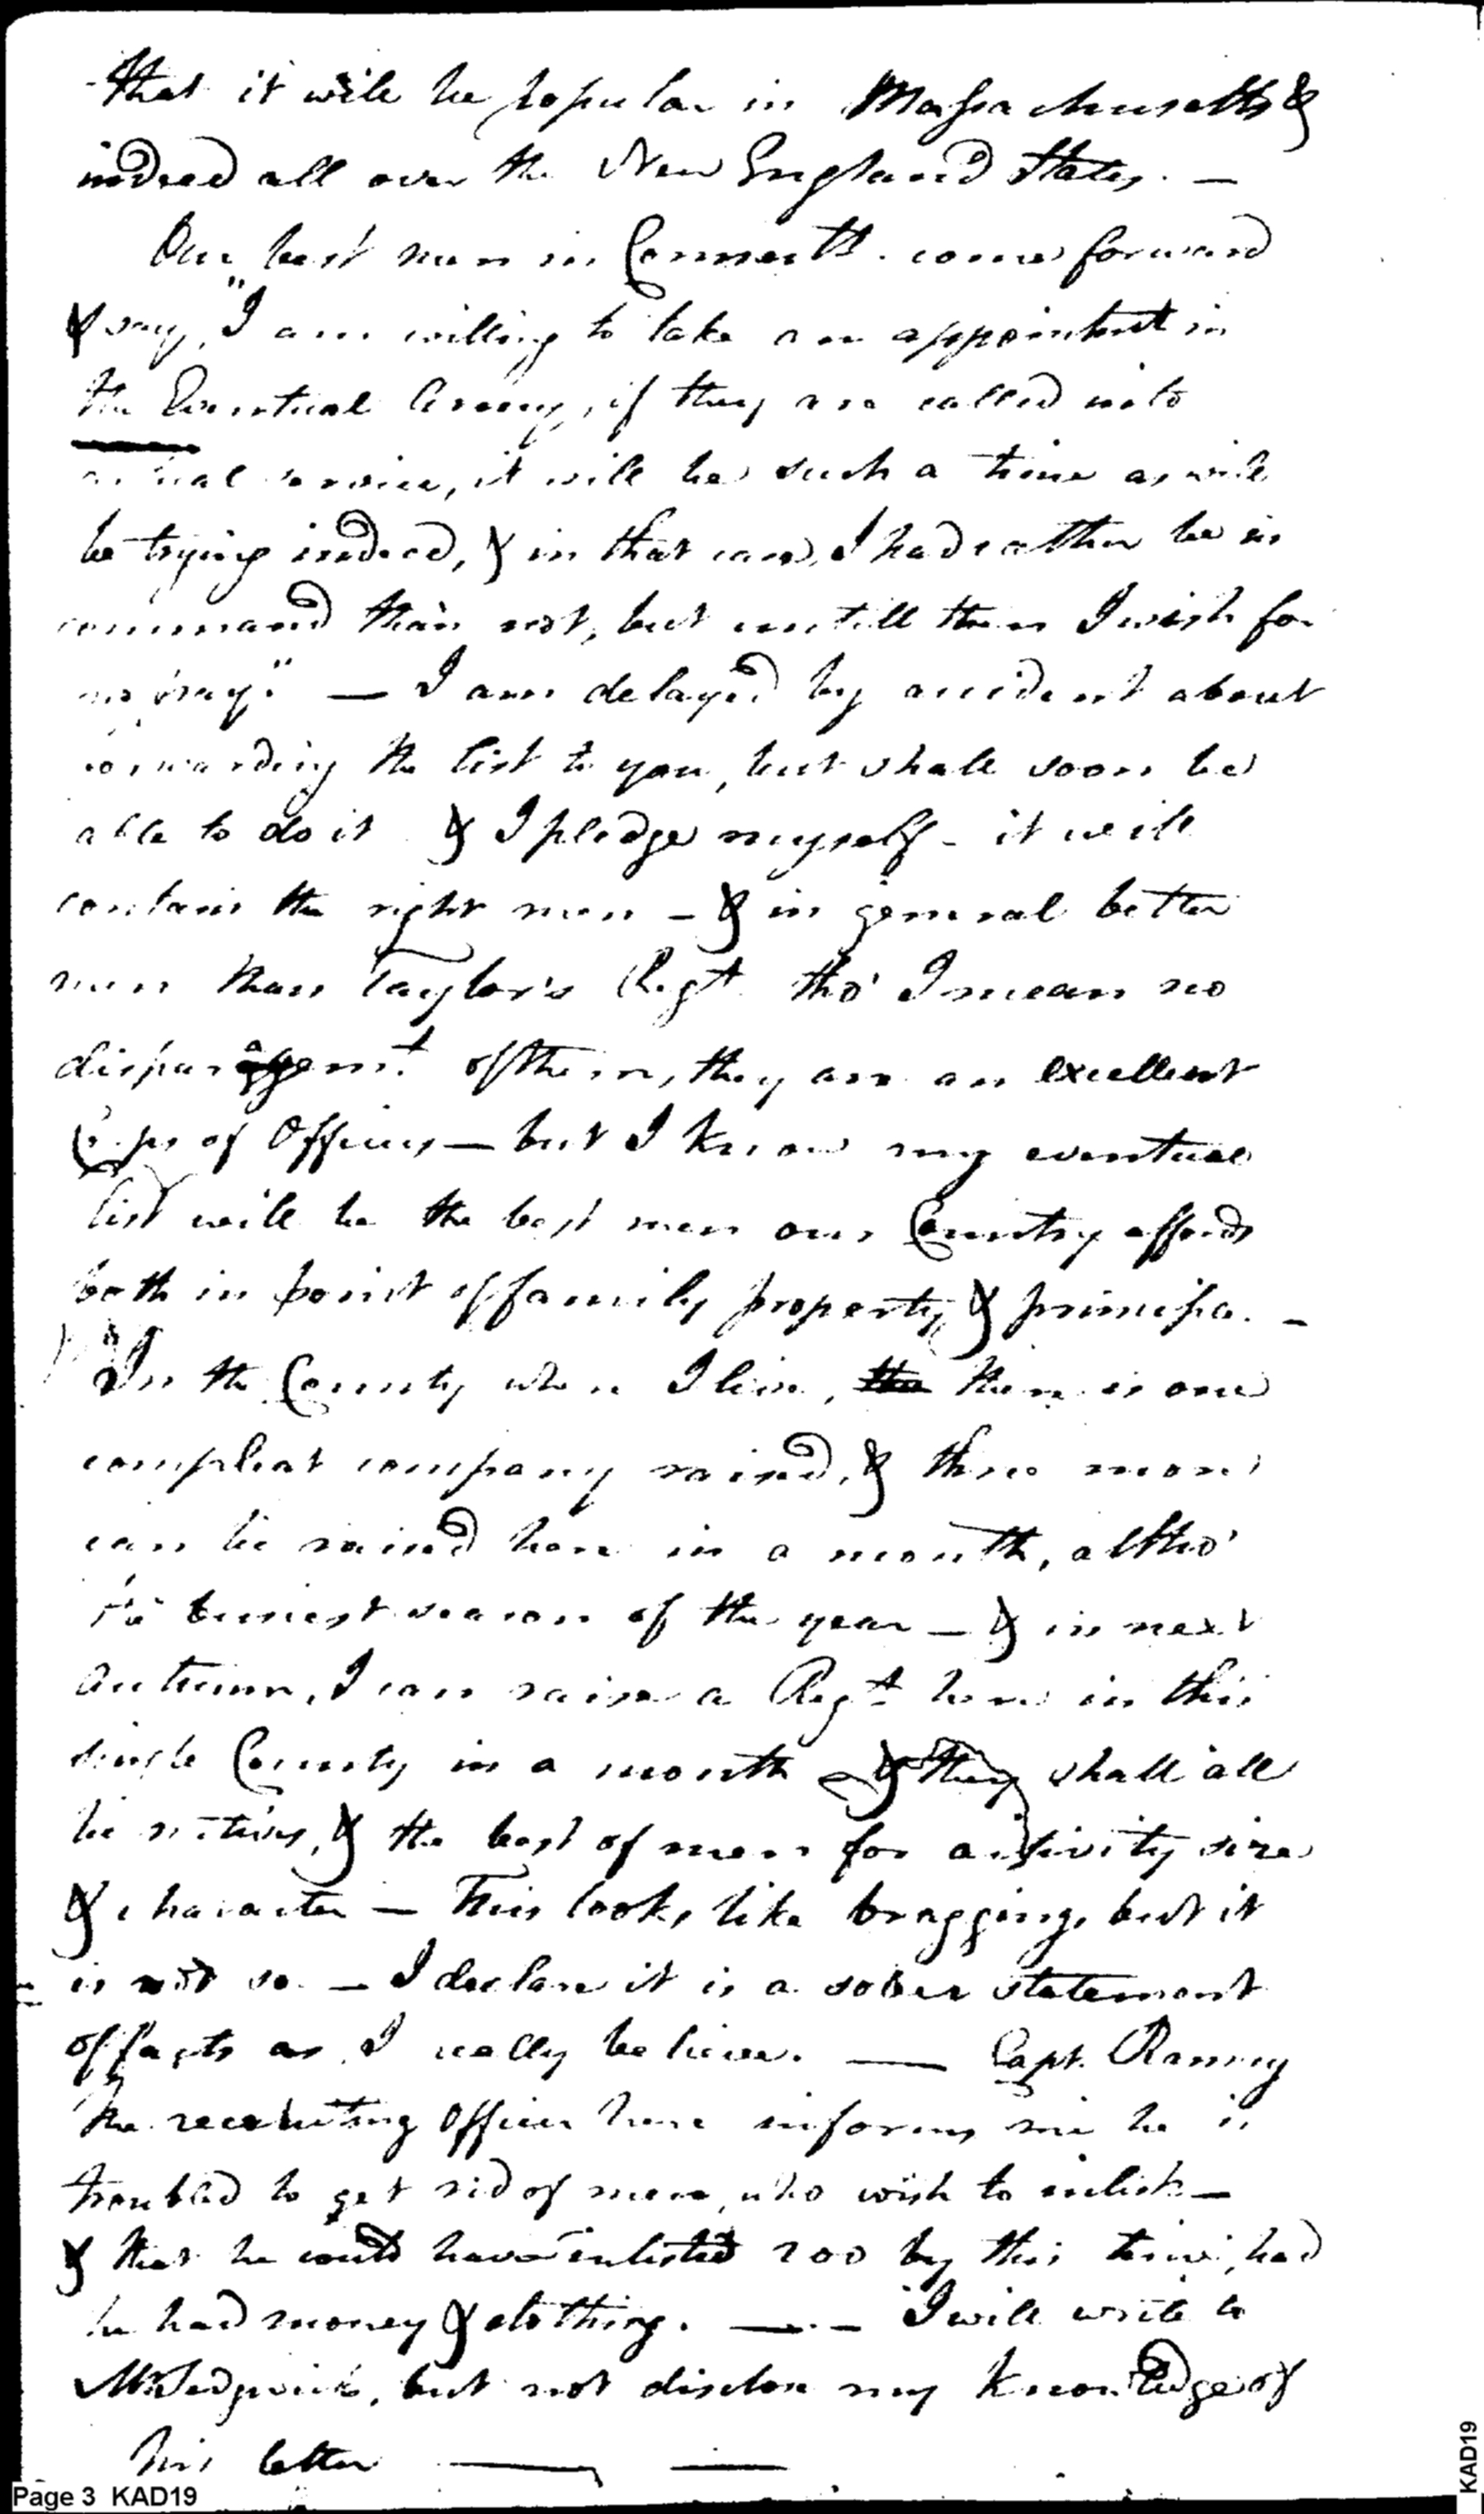 that it will be popular in Massachusetts &
indeed all over the New England States. —
Our best men in Connectt. come forward
& say, "I am willing to take an appointmt in
the Eventual Army, if they are called into
actual service, it will be such a time as will
be trying indeed, & in that case, I had rather be in
command than not, but untill then I wish for
no pay." — I am delayed by accident about
forwarding the list to you, but shall soon be
able to do it & I pledge myself - it will
contain the right men - & in general better
men than Taylor's Regt tho' I mean no
disparagemt of them, they are an excellent
Corps of Officers — but I know my eventual
list will be the best men our Country affords
both in point of family, property, & principle. -
In the County where I live, the there is one
compleat company raised, & three more
can be raised here in a month, altho'
the busiest season of the year — & in next
Autumn, I can raise a Regt here in this
single County in a month & they shall all
be natives, & the best of men for activity size
& character — This looks like bragging, but it
is not so. — I declare it is a sober statement
of facts as I really believe. — Capt. Ranney
the recruiting Officer here informs me he is
troubled to get rid of men, who wish to inlist —
& that he could have inlisted 200 by this time, had
he had money & clothing. — . — I will write to
Mr Sedgwick, but not disclose my knowledge of
his letter — —
Page 3 KAD19
KAD19